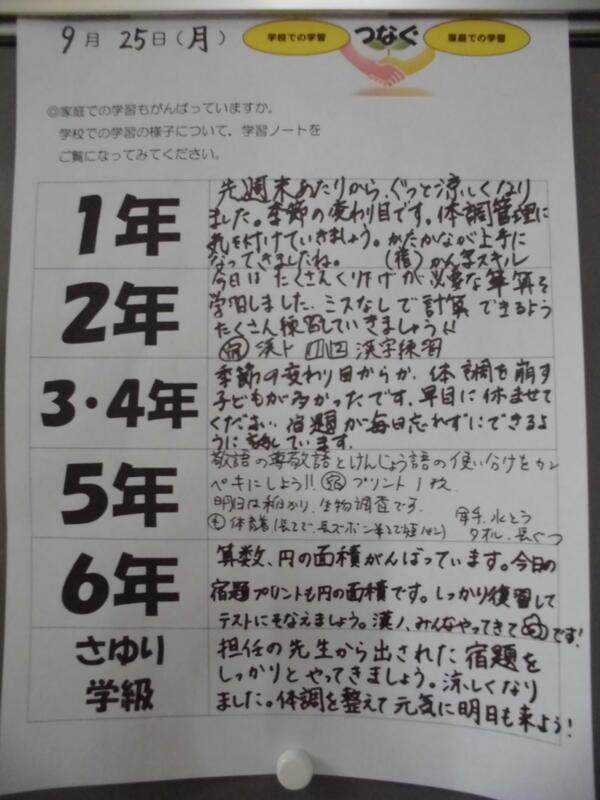 9月 25日(月)
学校での学習 つなぐ 家庭での学習
◎家庭での学習もがんばっていますか。
学校での学習の様子について、学習ノートを
ご覧になってみてください。
1年
先週末あたりから、ぐっと涼しくなり
ました。季節の変わり目です。体調管理に
気を付けていきましょう。かたかなが上手に
なってきましたね。 (宿)かん字スキル
2年
今日はたくさんくり下げが必要な筆算を
学習しました。ミスなしで計算できるよう
たくさん練習していきましょう!!
宿 漢ド 漢字練習
3・4年
季節の変わり目からか、体調を崩す
子どもが多かったです。早目に休ませて
ください。宿題が毎日忘れずにできるよ
うに しています。
5年
敬語の尊敬語とけんじょう語の使い分けをカン
ペキにしよう!! 宿 プリント1枚
明日は稲かり、生物調査です。
軍手、水とう
タオル、長ぐつ
6年
算数、円の面積がんばっています。今日の
宿題プリントも円の面積です。しっかり復習して
テストにそなえましょう。漢ノ、みんなやってきて です!
さゆり
学級
担任の先生から出された宿題を
しっかりとやってきましょう。涼しくなり
ました。体調を整えて元気に明日も来よう!